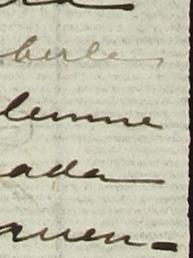 berle
lemne
ada
auen-